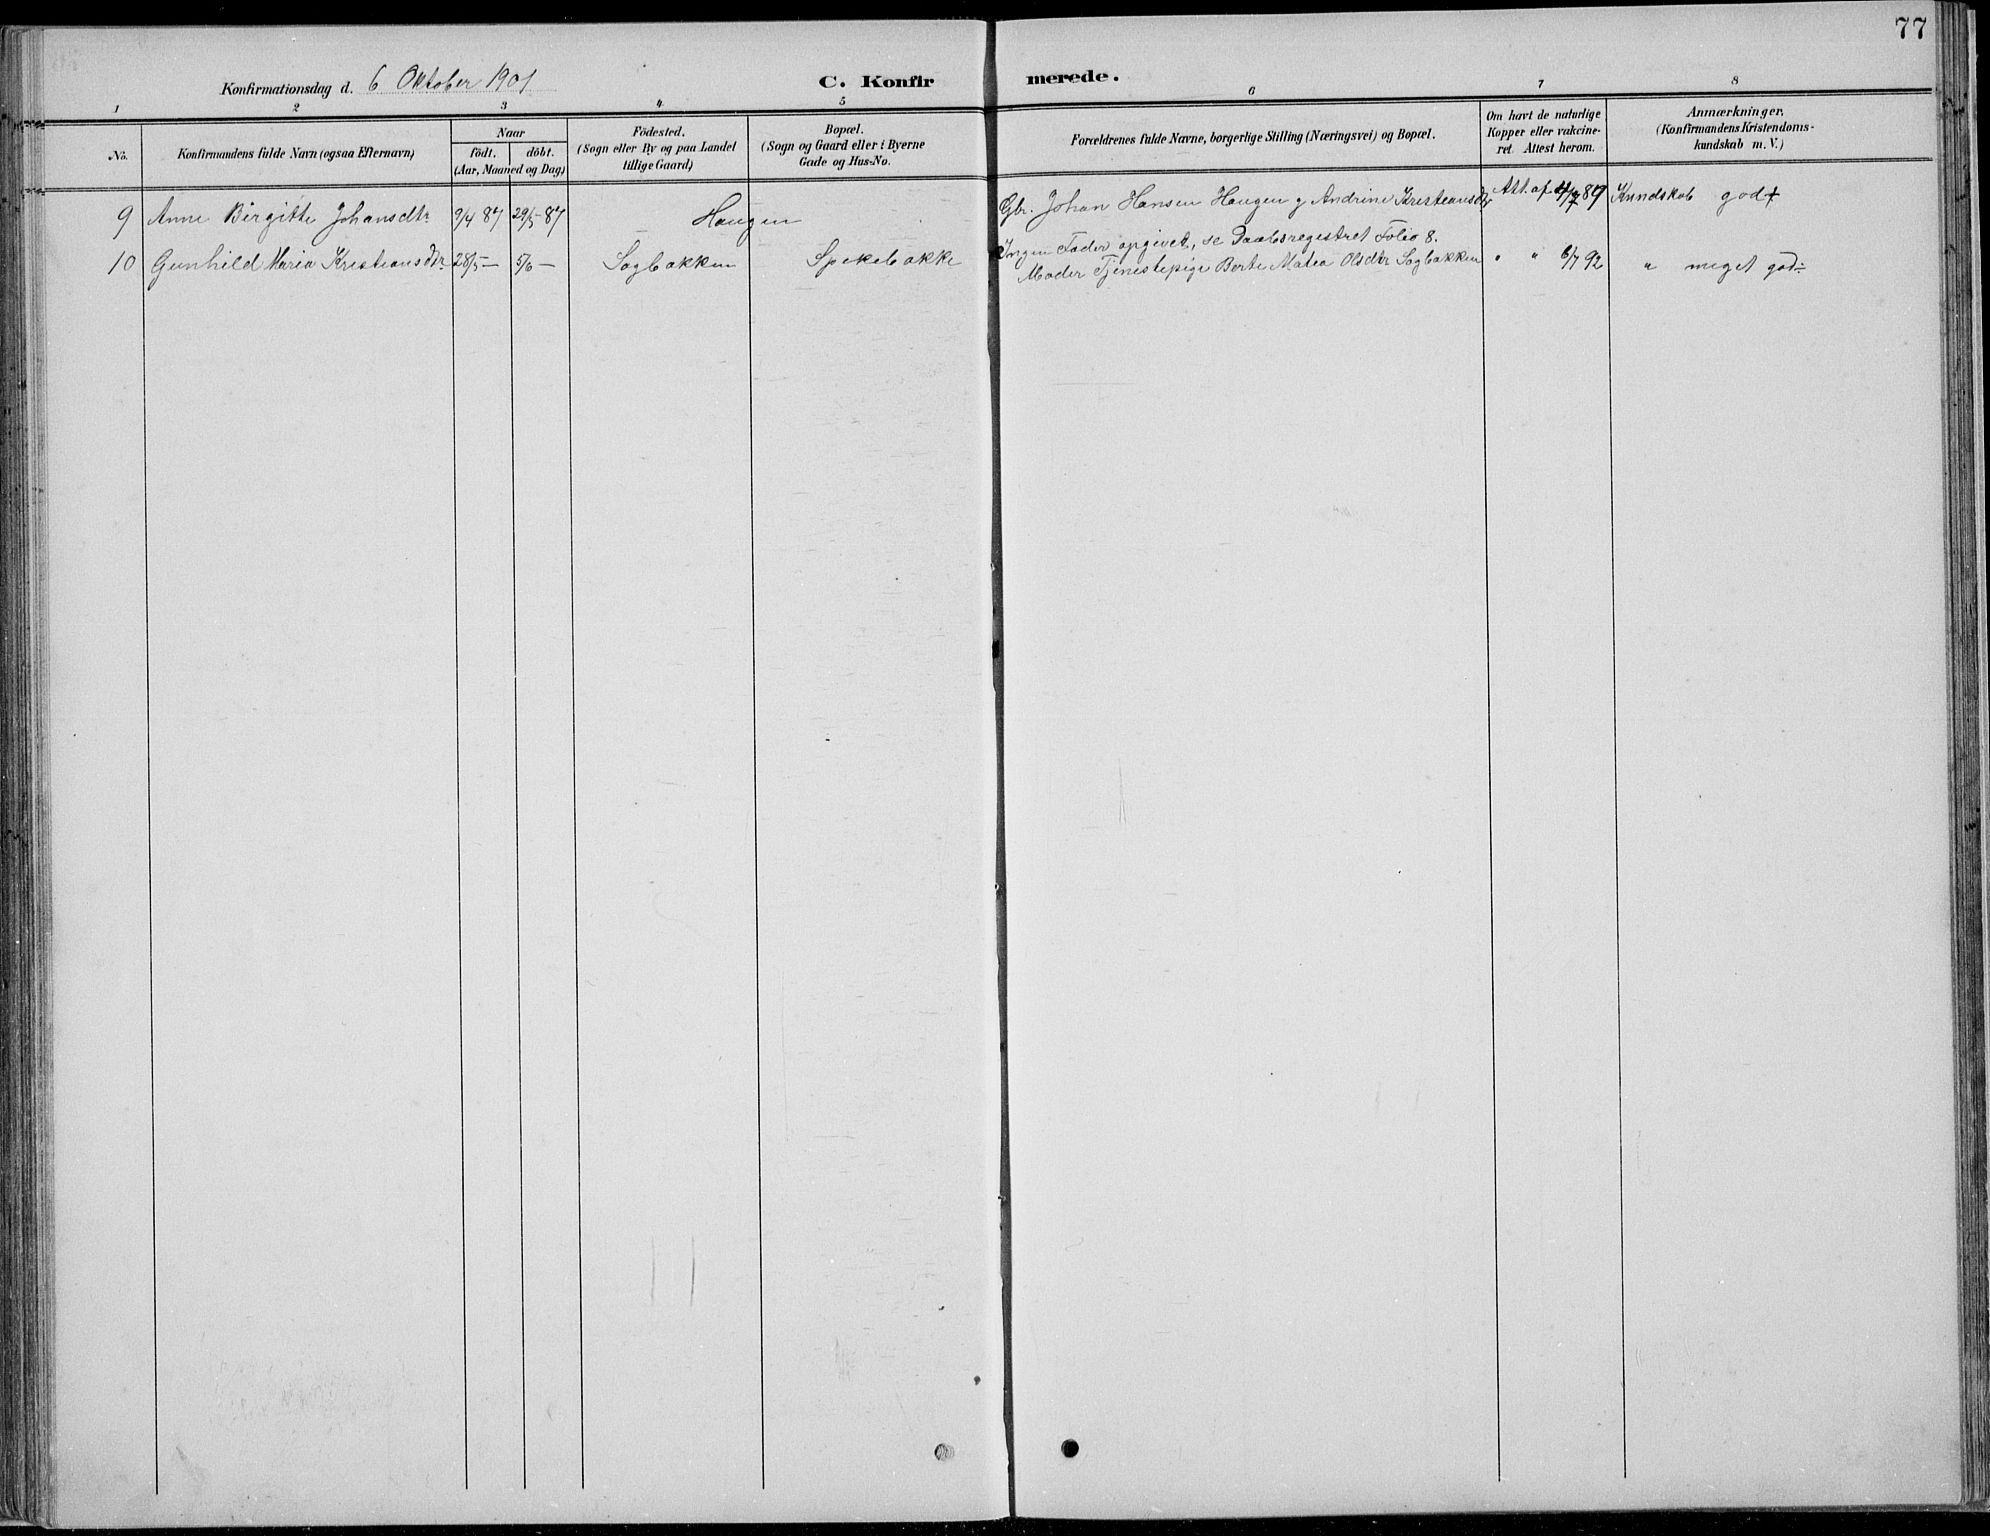 77
Konfirmationsdag d. 6 Oktober 1901 C. Konfirmerede.
1 2 3 4 5 6 7 8
No.
Konfirmandens fulde Navn (ogsaa Efternavn)
Naar
födt. döbt.
(Aar, Maaned og Dag)
Födested.
(Sogn eller By og paa Landet
tillige Gaard)
Bopæl.
(Sogn og Gaard eller i Byerne
Gade og Hus-No.
Forældrenes fulde Navne, borgerlige Stilling (Næringsvei) og Bopæl.
Om havt de naturlige
Kopper eller vakcine-
ret. Attest herom.
Anmærkninger.
(Konfirmandens Kristendoms-
kundskab m. V.)
9 Anne Birgitte Johansdtr 9/4 87 29/5 87 Haugen Gbr. Johan Hansen Haugen g Andrine Kristiansdtr Att. af 4/7 89 Kundskab god +
10 Gunhild Maria Kristiansdtr 28/5 — 5/6 — Sagbakken Spekebakke Ingen Fader opgivet, se Daabsregistret Folio 8.
Moder Tjenestepige Berte Matea Olsdtr Sagbakken " " 6/7 92 " meget god ÷